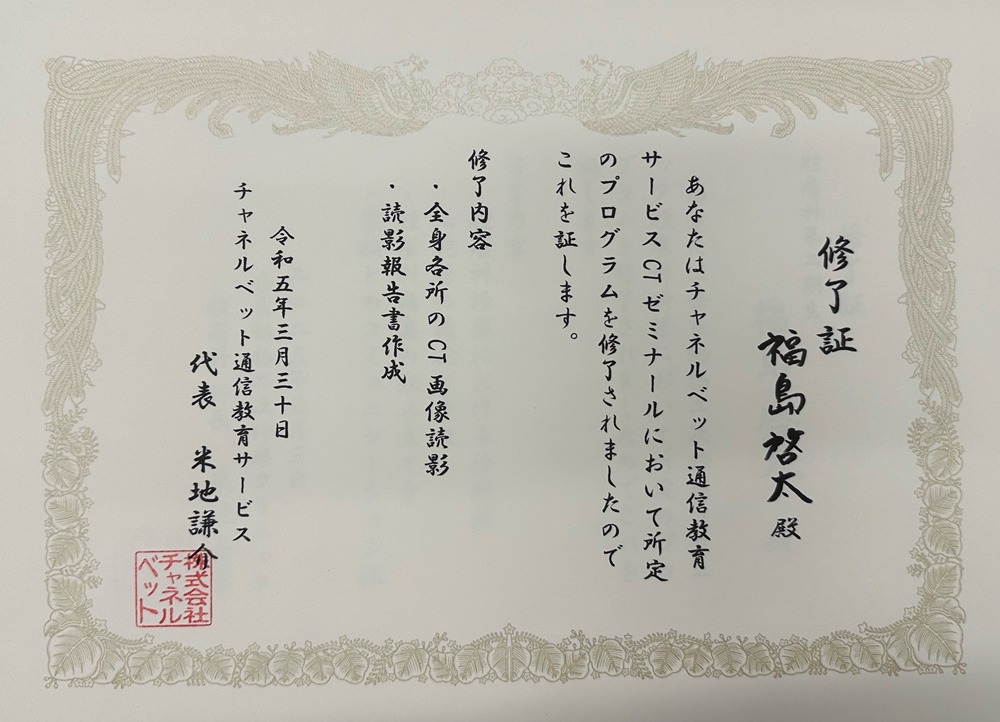 修了証
福島啓太 殿
あなたはチャネルベット通信教育
サービスCTゼミナールにおいて所定
のプログラムを修了されましたので
これを証します。
修了内容
・全身各所のCT画像読影
・読影報告書作成
令和五年三月三十日
チャネルベット通信教育サービス
代表 米地謙介
株式会社
チャネル
ベット